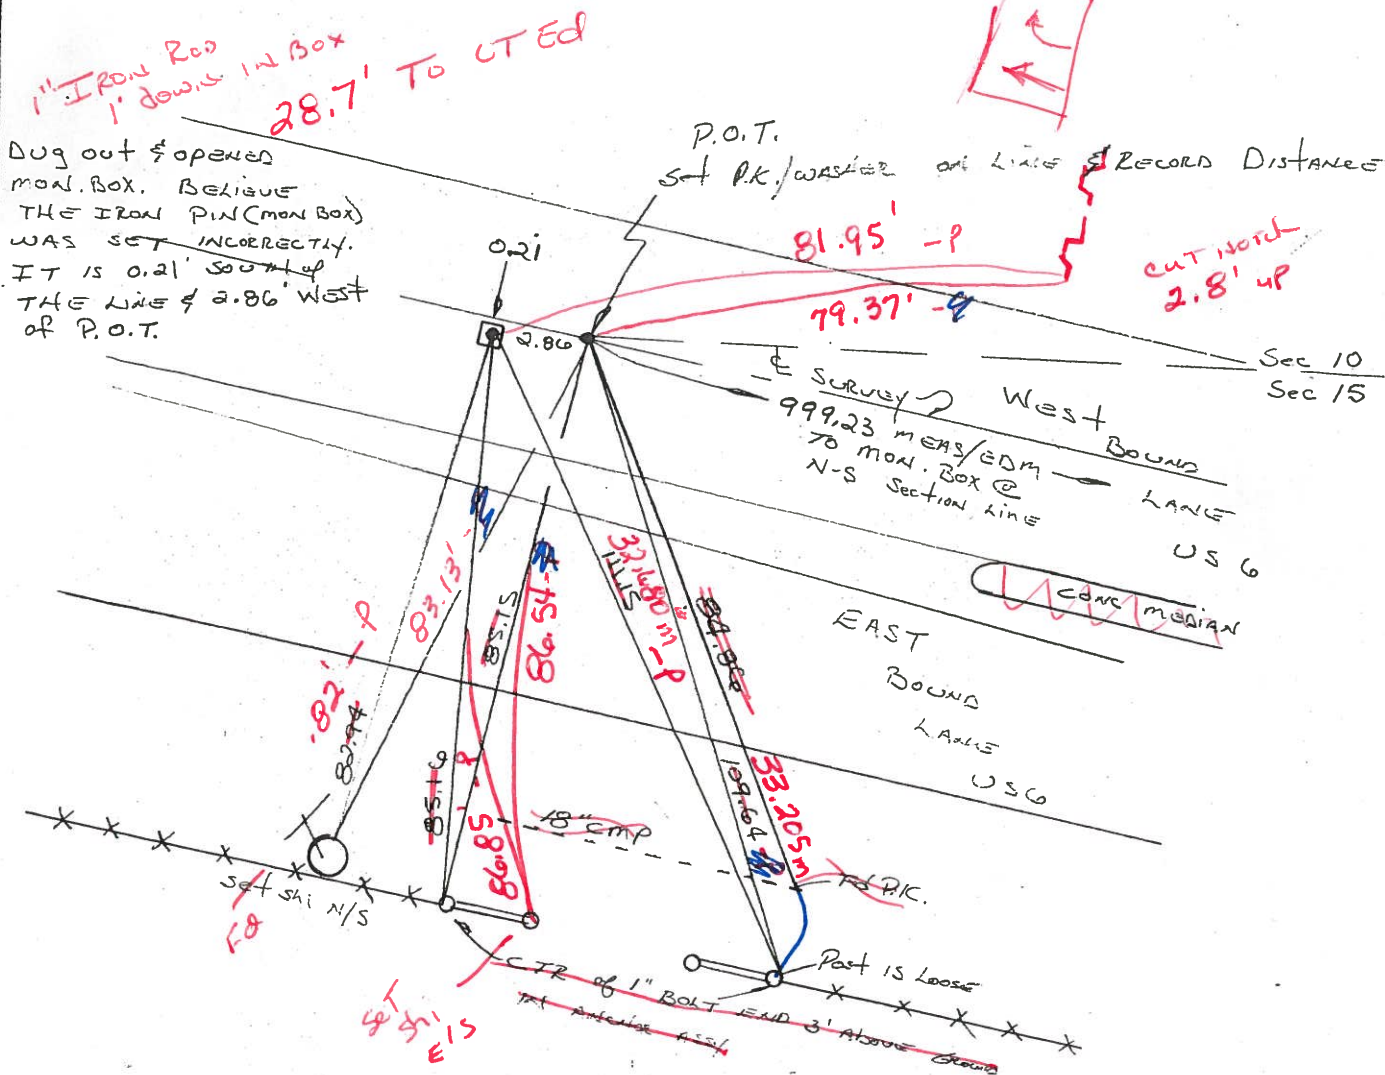 1" IRON ROD
1' down IN BOX
28.7' TO CT Ed
Dug out & OPENED
MON. BOX. BELIEVE
THE IRON PIN (MON BOX)
WAS SET INCORRECTLY.
IT IS 0.21' South of
THE LINE & 2.86' WEST
of P.O.T.
P.O.T.
Set P.K./WASHER ON LINE & RECORD DISTANCE
0.21
2.86
81.95' - P
79.37' -
CUT Notch
2.8' UP
Sec 10
Sec 15
℄ SURVEY
999.23 MEAS/EDM
TO MON. BOX @
N-S Section Line
West
BOUND
LANE
US 6
CONC MEDIAN
EAST
BOUND
LANE
US6
83.13' -
85.15
86.54 -
32.680 m - P
111.15
84.86
.82' - P
82.94
85.16
86.85' - P
109.64
33.205m
18" CMP
Fd P.K.
set shi N/S
Fd
set
shi
E/S
Post IS LOOSE
CTR of 1" BOLT END 3' ABOVE Ground
ANCHOR ASSY